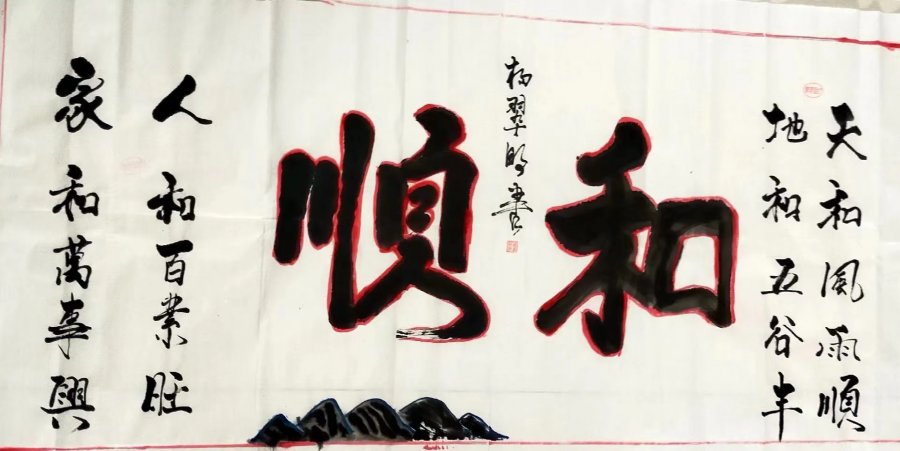 天和風雨順
地和五谷丰
和順
杨翠明书
人和百業旺
家和萬事興